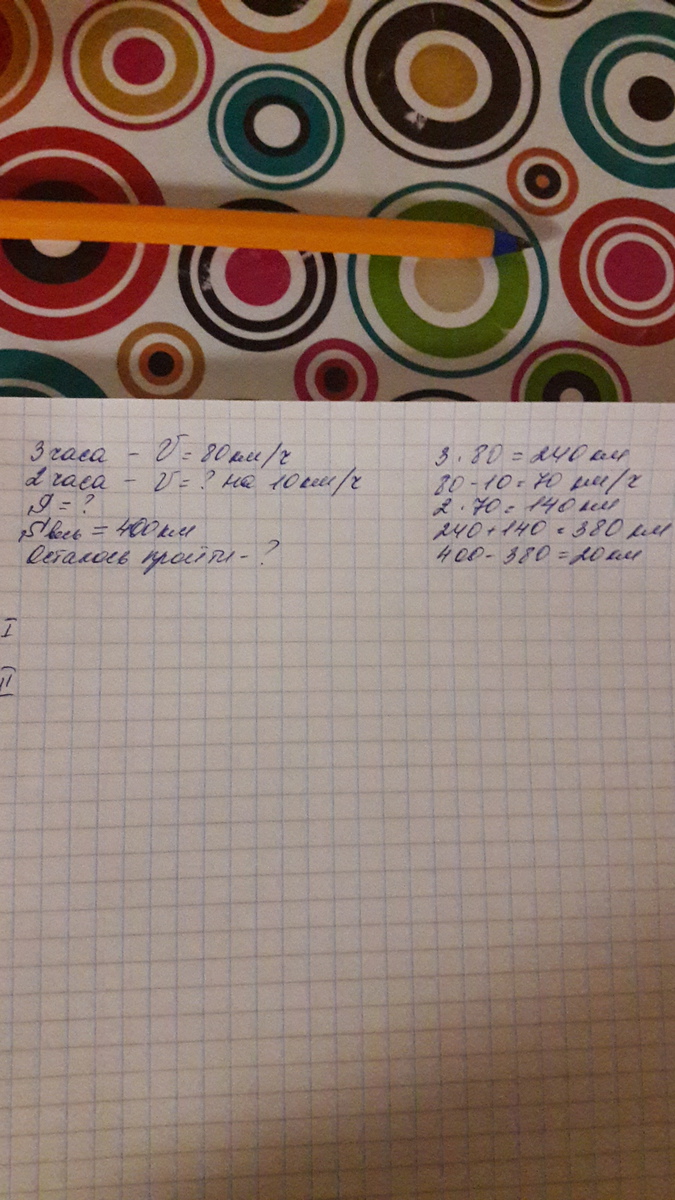 3 часа - V = 80 км/ч
2 часа - V = ? на 10 км/ч
S = ?
S весь = 400 км
Осталось пройти - ?
3 · 80 = 240 км
80 - 10 = 70 км/ч
2 · 70 = 140 км
240 + 140 = 380 км
400 - 380 = 20 км
I
II